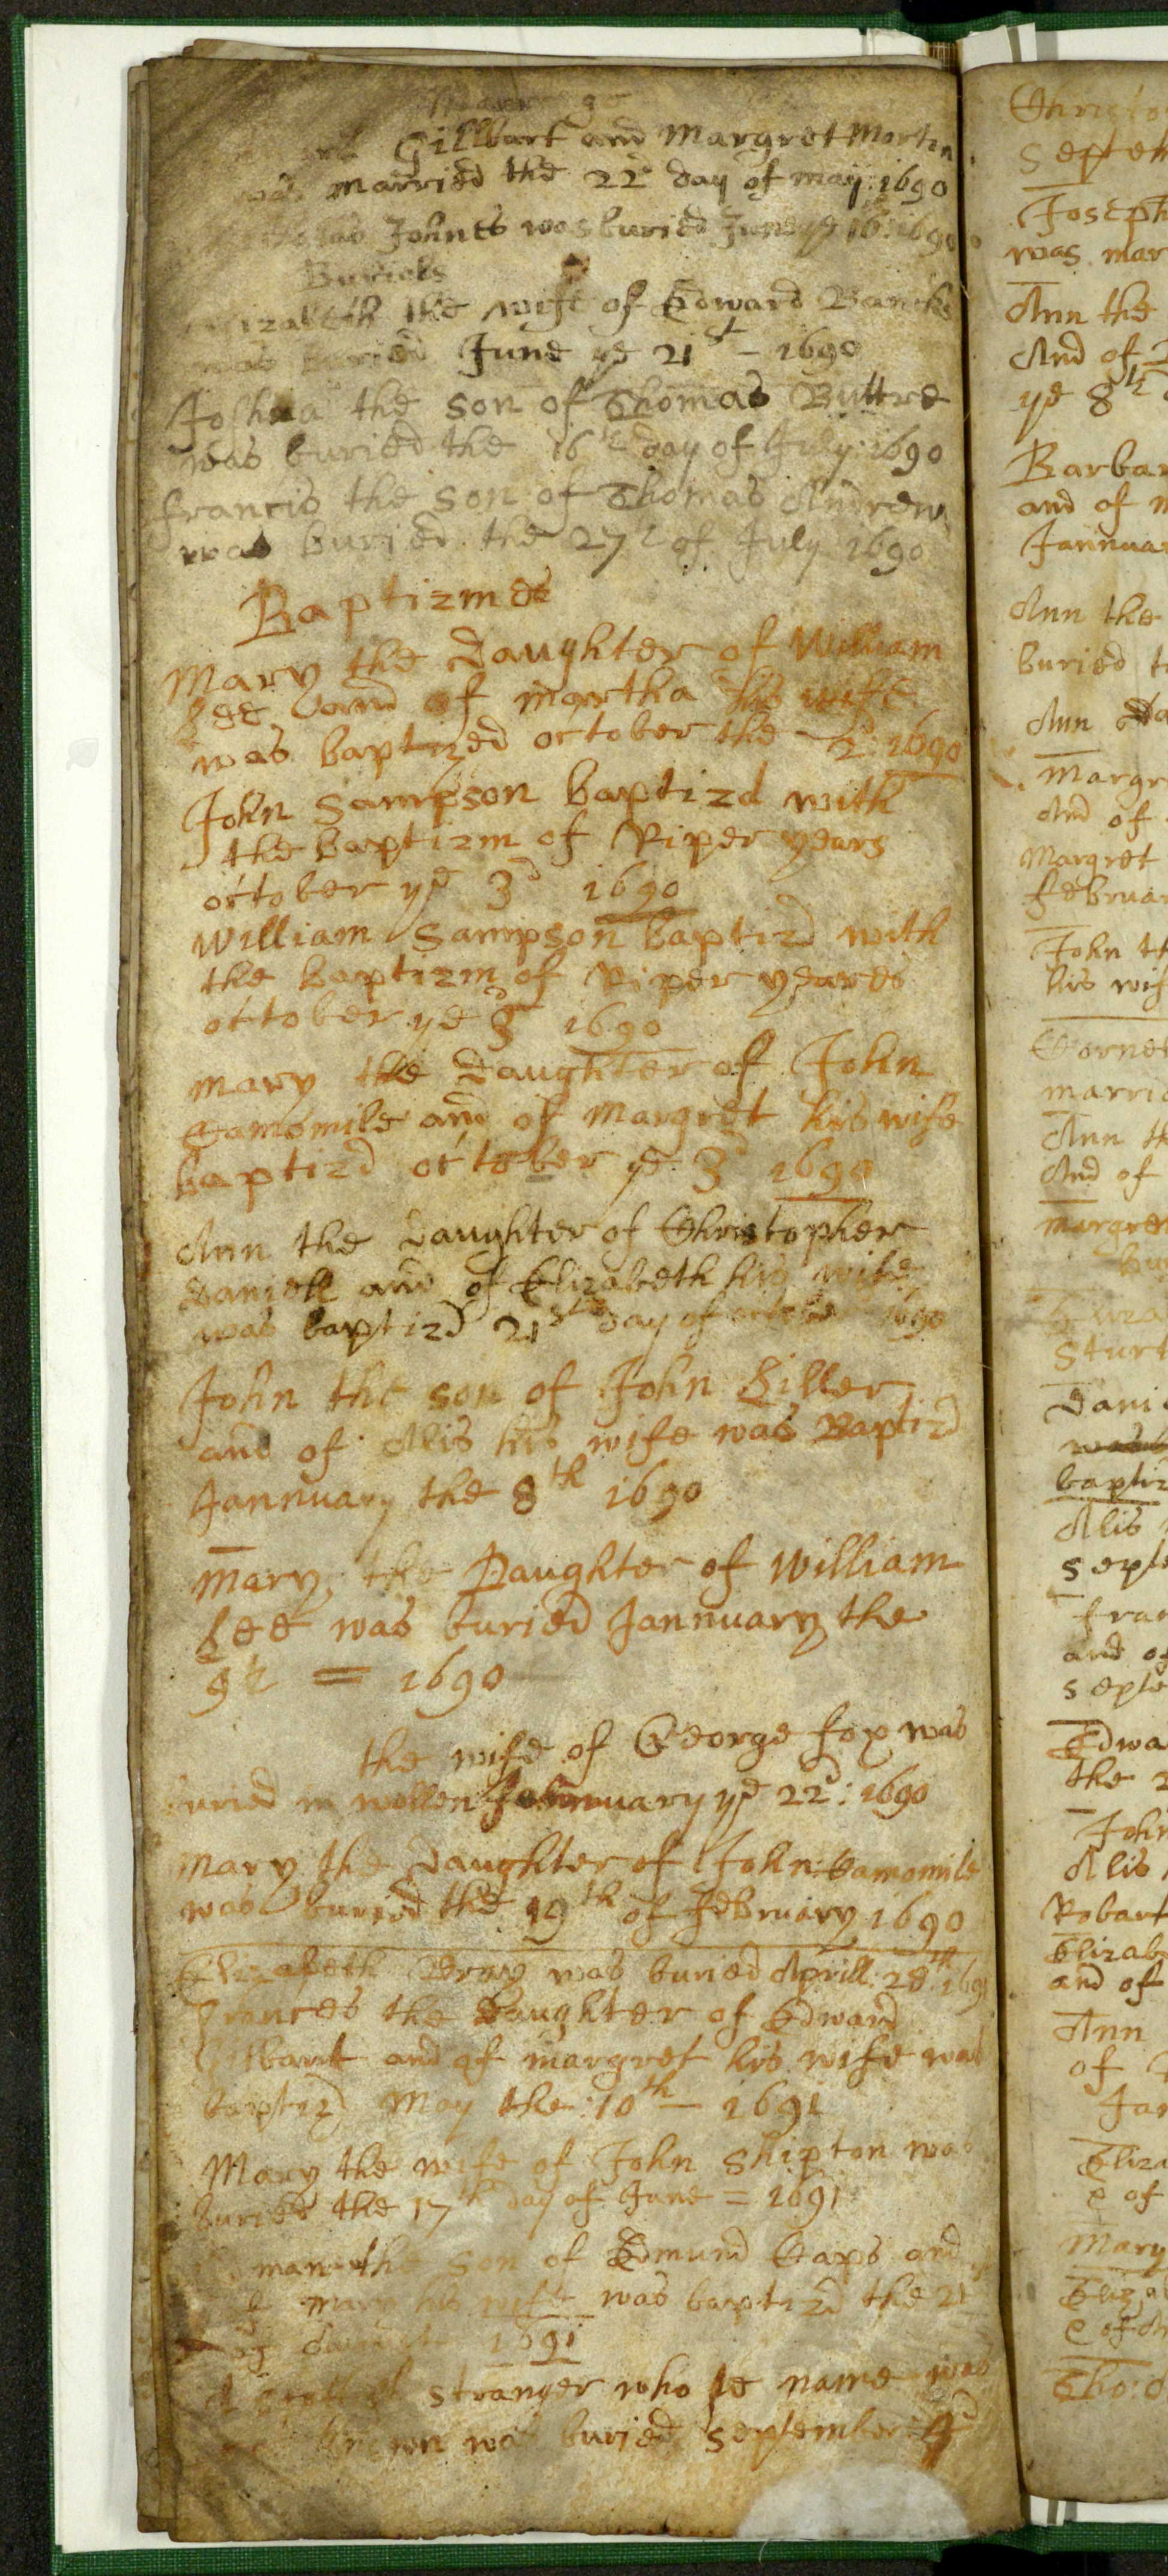 Gillbart and Margret Mortin
was married the 22d day of may: 1690
Johnes was buried June ye 16: 1690
Burials
Elizabeth the wife of Edward Bancks
was buried June ye 21st – 1690
Joshua the son of Thomas Buttre
was buried the 16th day of July: 1690
francis the son of Thomas Andrew
was buried the 27th of July 1690
Baptizmes
Mary the Daughter of William
Lee and of martha his wife
was baptized october the 2d: 1690
John Sampson baptizd with
the baptizm of Riper years
october ye 3d 1690
William Sampson baptizd with
the baptizm of Riper yeares
october ye 3d 1690
mary the Daughter of John
Camomile and of Margret his wife
baptizd october ye 3d 1690
Ann the Daughter of Christopher
Daniell and of Elizabeth his wife
was baptizd 21st day of october 1690
John the son of John Siller
and of Alis his wife was Baptizd
Jannuary the 8th 1690
Mary the Daughter of William
Lee was buried Jannuary the
9th = 1690
the wife of George fox was
buried in wollen Jannuary ye 22d: 1690
Mary the Daughter of John Camomile
was buried the 19th of February 1690
Elizabeth was buried Aprill: 28th: 1691
frances the Daughter of Edward
Gilbart and of margret his wife was
baptizd May the: 10th – 1691
Mary the wife of John Shipton was
buried the 17th day of June = 1691
the son of Edmund Caps and
of mary his wife was baptizd the 21
of 1691
A stranger who se name was
not known was buried September 4d
Christo
Septem
Joseph
was mar
Ann the
And of
ye 8th
Barbar
and of m
Jannua
Ann the
buried t
Ann
Margr
And of
Margret
februar
John th
his wif
Cornel
marrie
Ann th
And of
margret
bu
Eliza
Sturt
Dani
baptiz
Alis
septe
fran
and of
septe
Edwa
the 2
John
Alis
Robart
Elizab
and of
Ann
of
Jan
Eliza
& of
Mary
Eliza
& of
Tho: